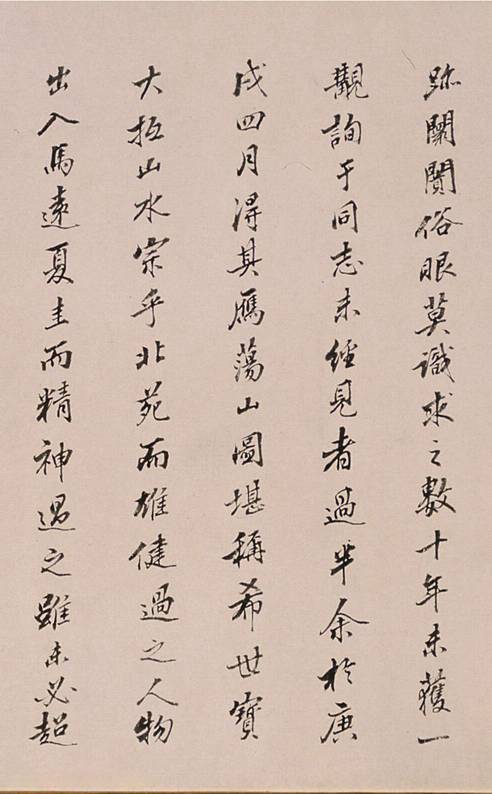 跡闤闠俗眼莫識求之數十年未獲一
觀詢于同志未經見者過半余於庚
戌四月得其鴈蕩山圖堪稱希世寶
大抵山水宗乎北苑而雄健過之人物
出入馬遠夏圭而精神過之雖未必超